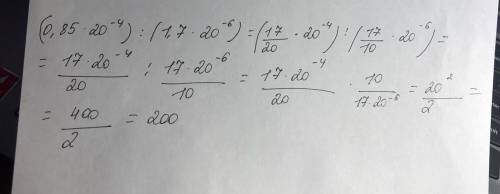 (0,85·20⁻⁴) : (1,7·20⁻⁶) = (17/20 · 20⁻⁴) : (17/10 · 20⁻⁶) =
= 17·20⁻⁴/20 : 17·20⁻⁶/10 = 17·20⁻⁴/20 · 10/17·20⁻⁶ = 20²/2 =
= 400/2 = 200